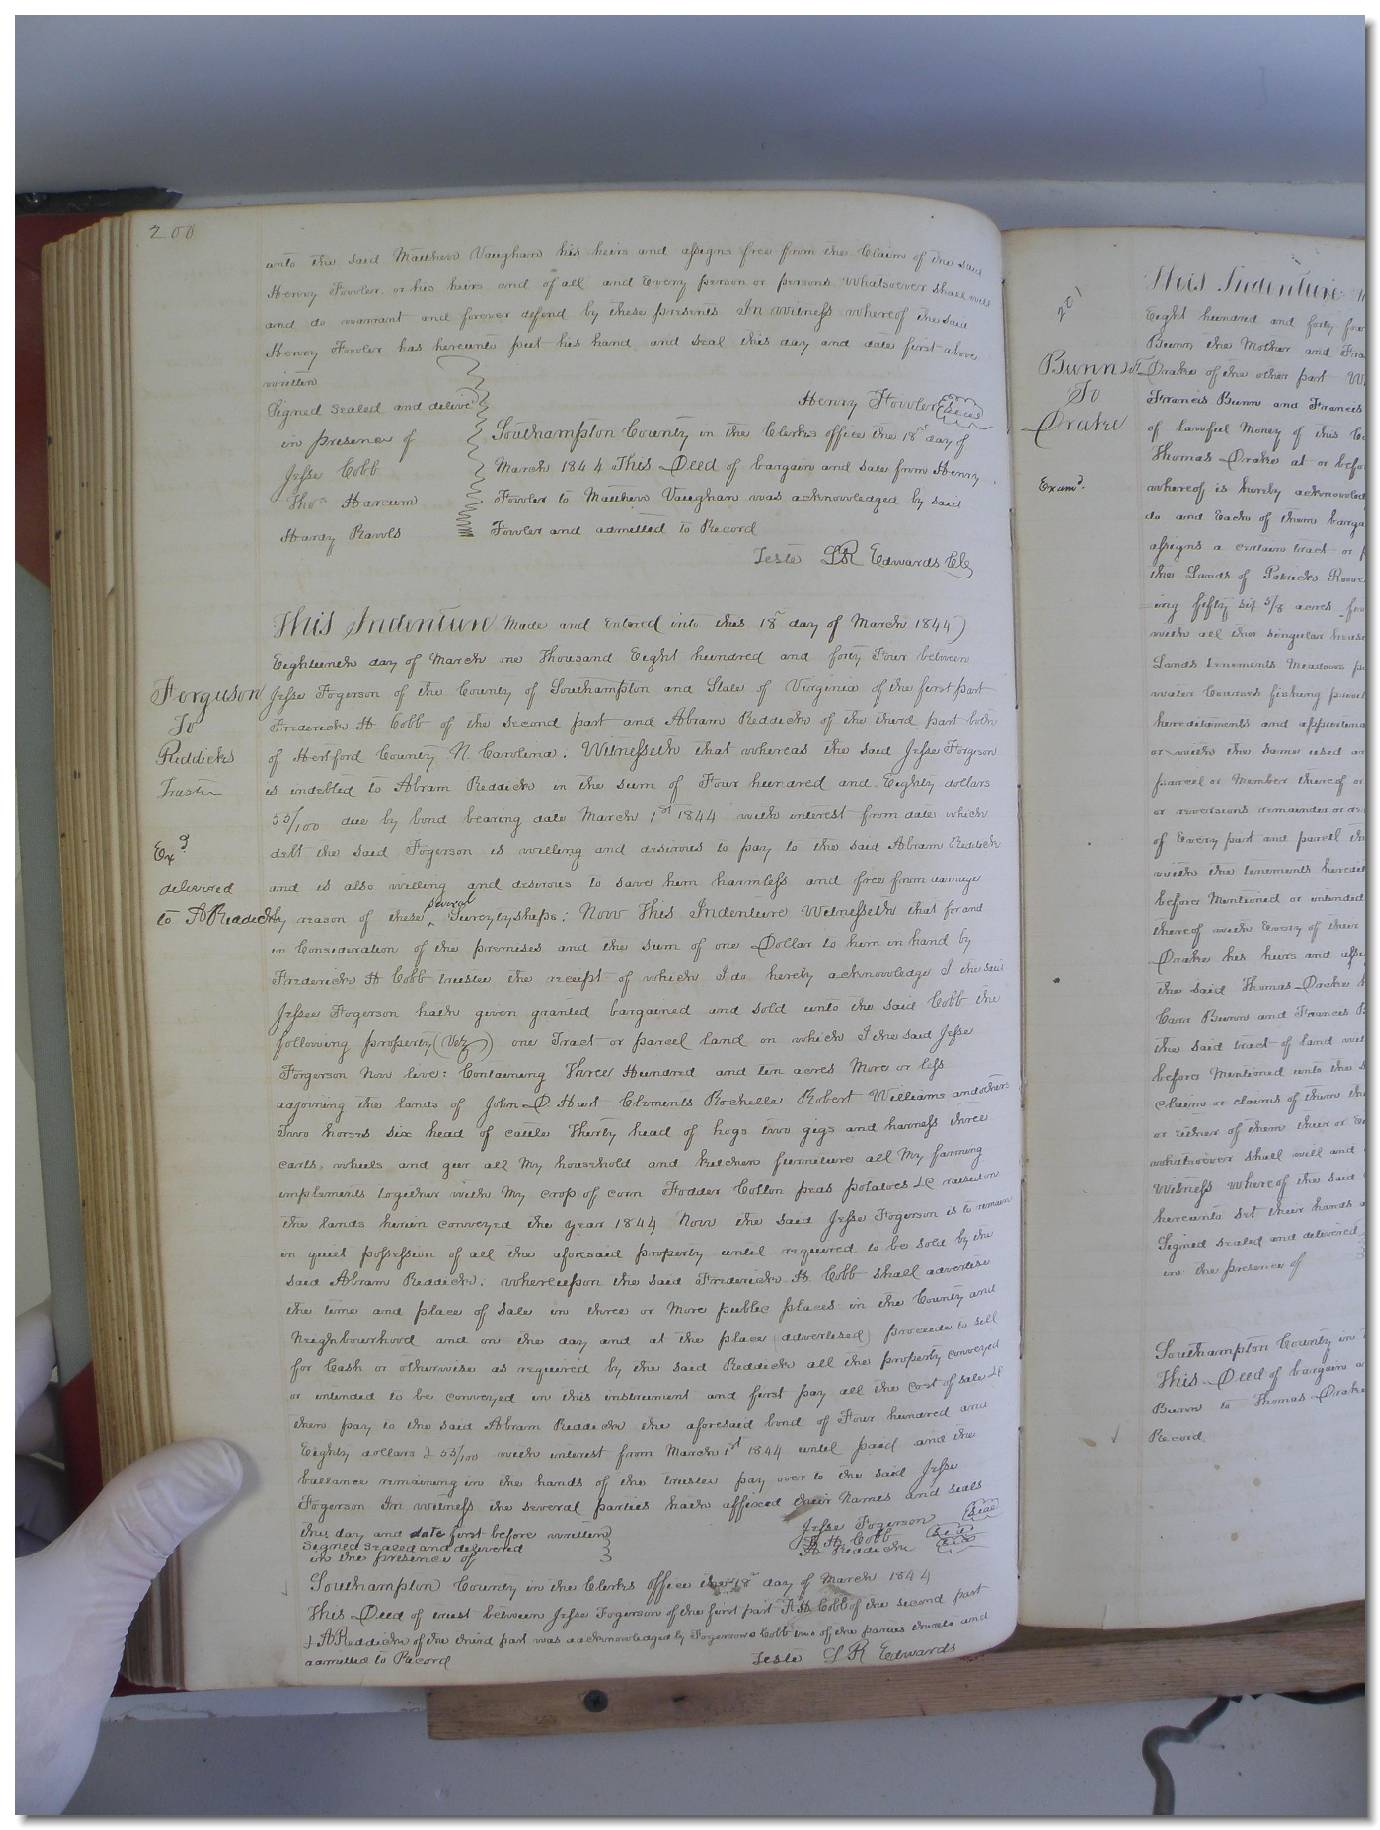 200
unto the said Matthew Vaughan his heirs and assigns free from the Claim of the said
Henry Fowler or his heirs and of all and Every person or persons Whatsoever shall will
and do warrant and forever defend by these presents In witness whereof the said
Henry Fowler has hereunto put his hand and seal this day and date first above
written
Signed sealed and delive
in presence of
Jesse Cobb
Thos Harcum
Hardy Rawls
Henry Fowler Seal
Southampton County in the Clerks office the 18th day of
March 1844 This Deed of bargain and sale from Henry
Fowler to Matthew Vaughan was acknowledged by said
Fowler and admitted to Record
Teste LR Edwards Clk
Forguson
To
Reddicks
Trustee
Exd
delivered
to A Reddick
This Indenture Made and Entered into this 18th day of March 1844)
Eighteenth day of March one Thousand Eight hundred and forty Four between
Jesse Fogerson of the County of Southampton and State of Virginia of the first part
Frederick H Cobb of the second part and Abram Reddick of the third part both
of Hertford County N. Carolina: Witnesseth that whereas the said Jesse Forgison
is indebted to Abram Reddick in the sum of Four hundred and Eighty dollars
53/100 due by bond bearing date March 1st 1844 with interest from date which
debt the said Fogerson is willing and desirous to pay to the said Abram Reddick
and is also willing and desirous to save him harmless and free from damage
by reason of these several Suretyships: Now This Indenture Witnesseth that for and
in Consideration of the premises and the sum of one Dollar to him in hand by
Frederick H Cobb trustee the receipt of which I do hereby acknowledge I the said
Jessee Fogerson hath given granted bargained and sold unto the said Cobb the
following property (Viz) one Tract or parcel land on which I the said Jesse
Forgerson Now live: Containing Three Hundred and ten acres More or less
adjoining the lands of John D Hart Clements Rochelle Robert Williams and others
Two horses six head of cattle Thirty head of hogs two gigs and harness three
carts, wheels and geer all My household and kitchen furniture all My farming
implements together with My crop of corn Fodder Cotton peas potatoes &c raised on
the lands herein conveyed the year 1844 Now the said Jesse Fogerson is to remain
in quiet possession of all the aforesaid property until required to be sold by the
said Abram Reddick: whereupon the said Frederick H Cobb shall advertise
the time and place of sale in three or More public places in the County and
Neighbourhood and on the day and at the place (advertised) proceede to sell
for Cash or otherwise as required by the said Reddick all the property conveyed
or intended to be conveyed in this instrument and first pay all the cost of sale &c
then pay to the said Abram Reddick the aforesaid bond of Four hundred and
Eighty dollars & 53/100 with interest from March 1st 1844 until paid and the
ballance remaining in the hands of the trustee pay over to the said Jesse
Fogerson In witness the several parties hath affixed their Names and seals
this day and date first before written
Signed sealed and delivered
in the presence of
Jesse Fogerson Seal
F H Cobb Seal
A Reddick Seal
Southampton County in the Clerks office the 18th day of March 1844
This Deed of trust between Jesse Fogerson of the first part F H Cobb of the second part
& A Reddick of the third part was acknowledged by Fogerson & Cobb two of the parties thereto and
admitted to Record
Teste L R Edwards
201
Bunn
To
Drake
Examd.
This Indenture
Eight hundred and forty four
Bunn the Mother and
Drake of the other part
Francis Bunn and Francis
of lawful Money of this
Thomas Drake at or
whereof is hereby
do and Each of them
assigns a certain tract or
the Lands of Patrick
ing fifty six 5/8 acres
with all the singular
Lands tenements Meadows
water Courses fishing
hereditaments and
or with the same used
parcel or Member thereof or
or reversions remainder or
of Every part and parcel
with the tenements
before Mentioned or intended
thereof with Every of their
Drake his heirs and
the said Thomas Drake
Bunn and Francis
the said tract of land
before Mentioned unto the
claim or claims of them
or either of them their or
whatsoever shall will and
Witness Whereof the said
hereunto set their hands
Signed sealed and delivered
in the presence of
Southampton County in
This Deed of bargain
Bunn to Thomas Drake
Record